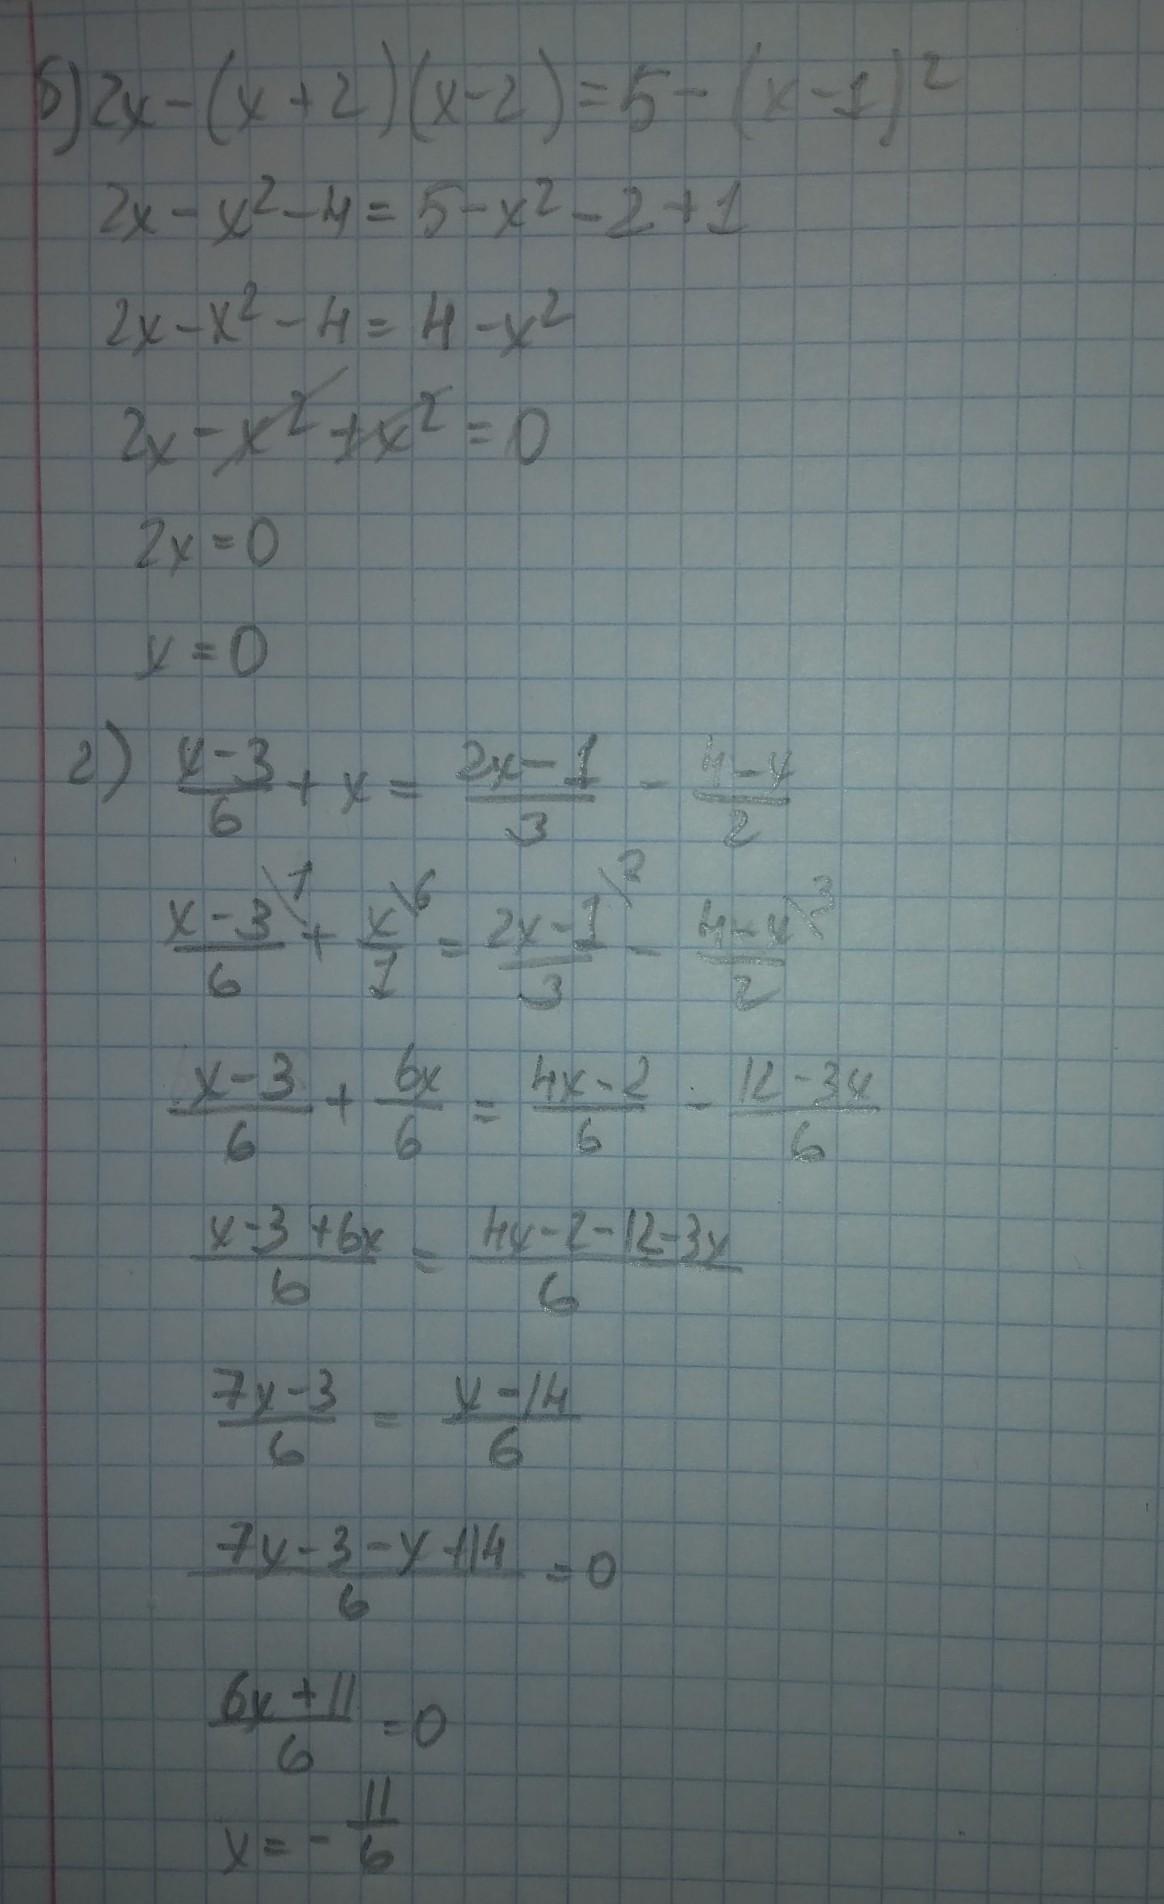 б) 2x-(x+2)(x-2)=5-(x-1)²
2x-x²-4=5-x²-2+1
2x-x²-4=4-x²
2x-x²+x²=0
2x=0
x=0
г) (x-3)/6 + x = (2x-1)/3 - (4-x)/2
(x-3)/6 \1 + x/1 \6 = (2x-1)/3 \2 - (4-x)/2 \3
(x-3)/6 + 6x/6 = (4x-2)/6 - (12-3x)/6
(x-3+6x)/6 = (4x-2-12-3x)/6
(7x-3)/6 = (x-14)/6
(7x-3-x+14)/6 = 0
(6x+11)/6 = 0
x = -11/6